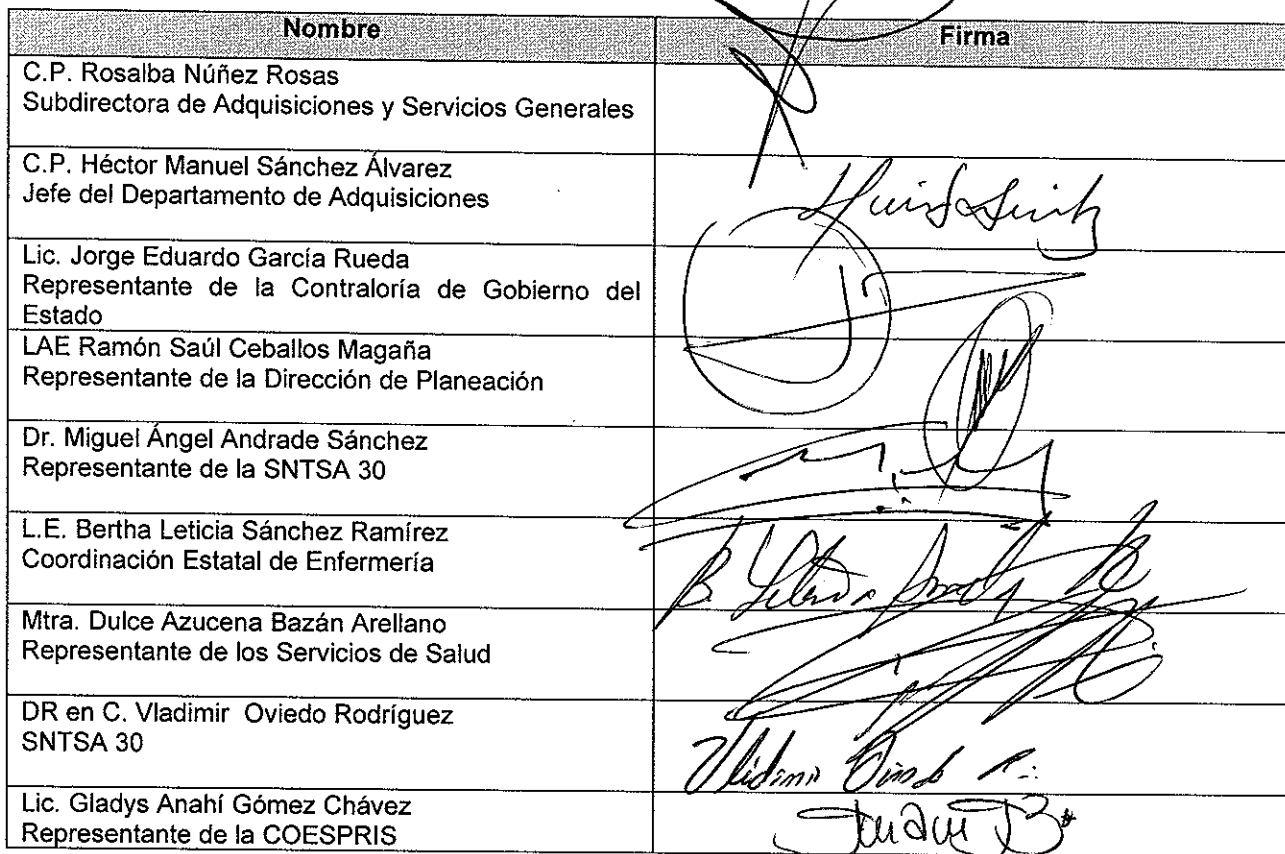 Nombre Firma
C.P. Rosalba Núñez Rosas
Subdirectora de Adquisiciones y Servicios Generales
C.P. Héctor Manuel Sánchez Álvarez
Jefe del Departamento de Adquisiciones
Lic. Jorge Eduardo García Rueda
Representante de la Contraloría de Gobierno del
Estado
LAE Ramón Saúl Ceballos Magaña
Representante de la Dirección de Planeación
Dr. Miguel Ángel Andrade Sánchez
Representante de la SNTSA 30
L.E. Bertha Leticia Sánchez Ramírez
Coordinación Estatal de Enfermería
Mtra. Dulce Azucena Bazán Arellano
Representante de los Servicios de Salud
DR en C. Vladimir Oviedo Rodríguez
SNTSA 30
Lic. Gladys Anahí Gómez Chávez
Representante de la COESPRIS